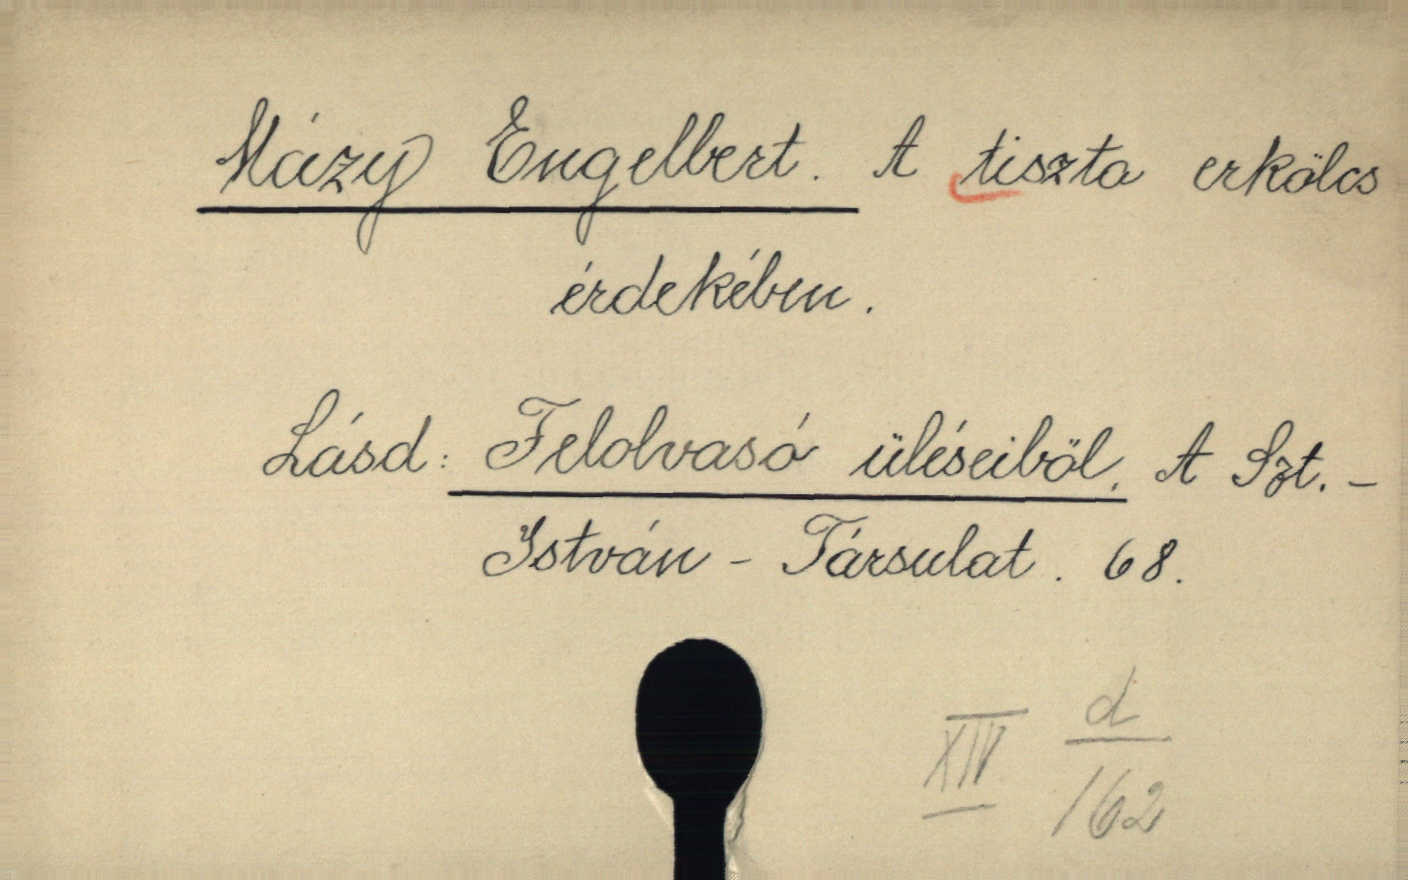 Mázy Engelbert. A tiszta erkölcs
érdekében.
Lásd: Felolvasó üléseiből. A Szt.-
István-Társulat. 68.
XIV d/162